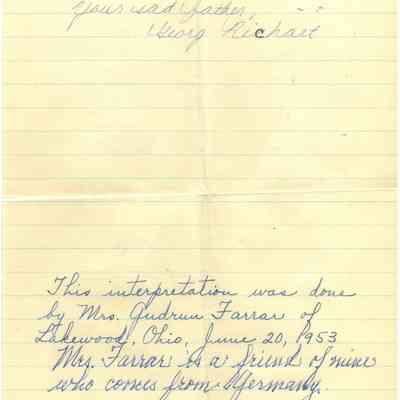 Your sad father,
Georg Richart
This interpretation was done
by Mrs. Gudrun Farrar of
Lakewood, Ohio, June 20, 1953
Mrs. Farrar is a friend of mine
who comes from Germany.